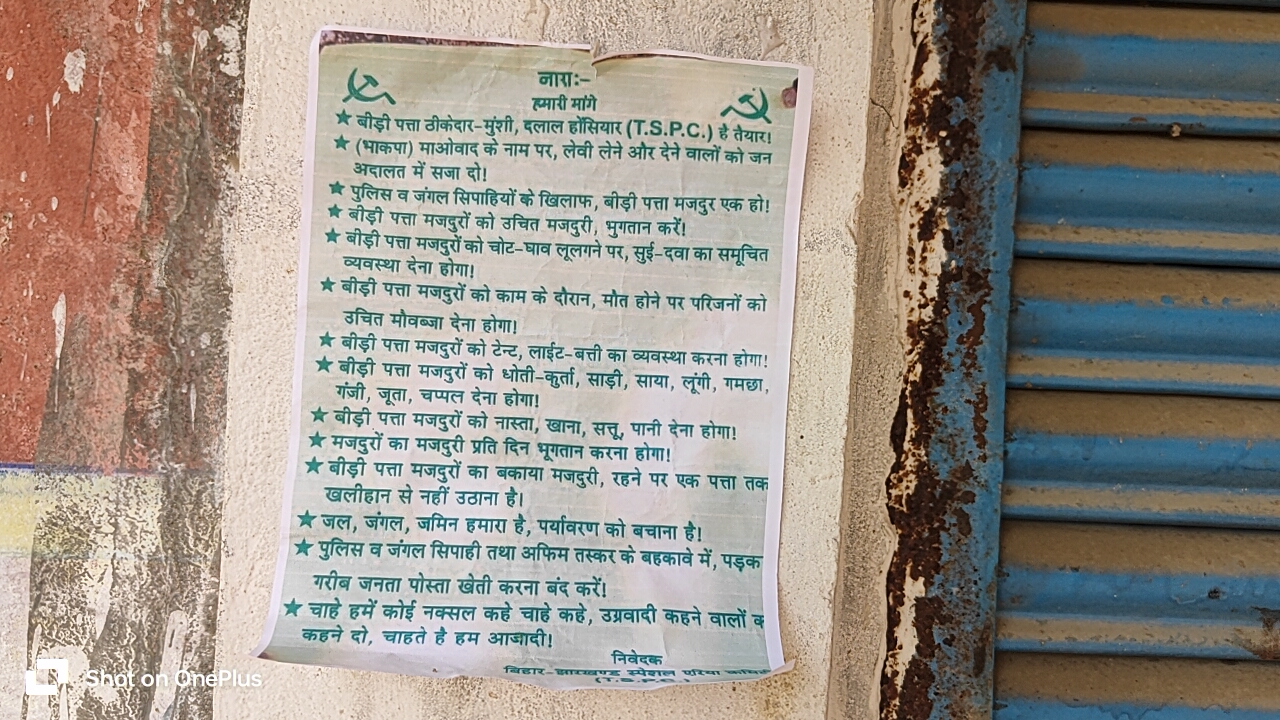 नाराः–
हमारी मांगे
★ बीड़ी पत्ता ठीकेदार–मुंशी, दलाल होंसियार (T.S.P.C.) है तैयार!
★ (भाकपा) माओवाद के नाम पर, लेवी लेने और देने वालों को जन
अदालत में सजा दो!
★ पुलिस व जंगल सिपाहियों के खिलाफ, बीड़ी पत्ता मजदुर एक हो!
★ बीड़ी पत्ता मजदुरों को उचित मजदुरी, भुगतान करें!
★ बीड़ी पत्ता मजदुरों को चोट–घाव लूलगने पर, सुई–दवा का समूचित
व्यवस्था देना होगा!
★ बीड़ी पत्ता मजदुरों को काम के दौरान, मौत होने पर परिजनों को
उचित मौवब्जा देना होगा!
★ बीड़ी पत्ता मजदुरों को टेन्ट, लाईट–बत्ती का व्यवस्था करना होगा!
★ बीड़ी पत्ता मजदुरों को धोती–कुर्ता, साड़ी, साया, लूंगी, गमछा,
गंजी, जूता, चप्पल देना होगा!
★ बीड़ी पत्ता मजदुरों को नास्ता, खाना, सत्तू, पानी देना होगा!
★ मजदुरों का मजदुरी प्रति दिन भूगतान करना होगा!
★ बीड़ी पत्ता मजदुरों का बकाया मजदुरी, रहने पर एक पत्ता तक
खलीहान से नहीं उठाना है।
★ जल, जंगल, जमिन हमारा है, पर्यावरण को बचाना है!
★ पुलिस व जंगल सिपाही तथा अफिम तस्कर के बहकावे में, पड़क
गरीब जनता पोस्ता खेती करना बंद करें!
★ चाहे हमें कोई नक्सल कहे चाहे कहे, उग्रवादी कहने वालों क
कहने दो, चाहते है हम आजादी!
निवेदक
बिहार–झारखण्ड स्पेशल एरिया
(T.S.P.C.)
Shot on OnePlus